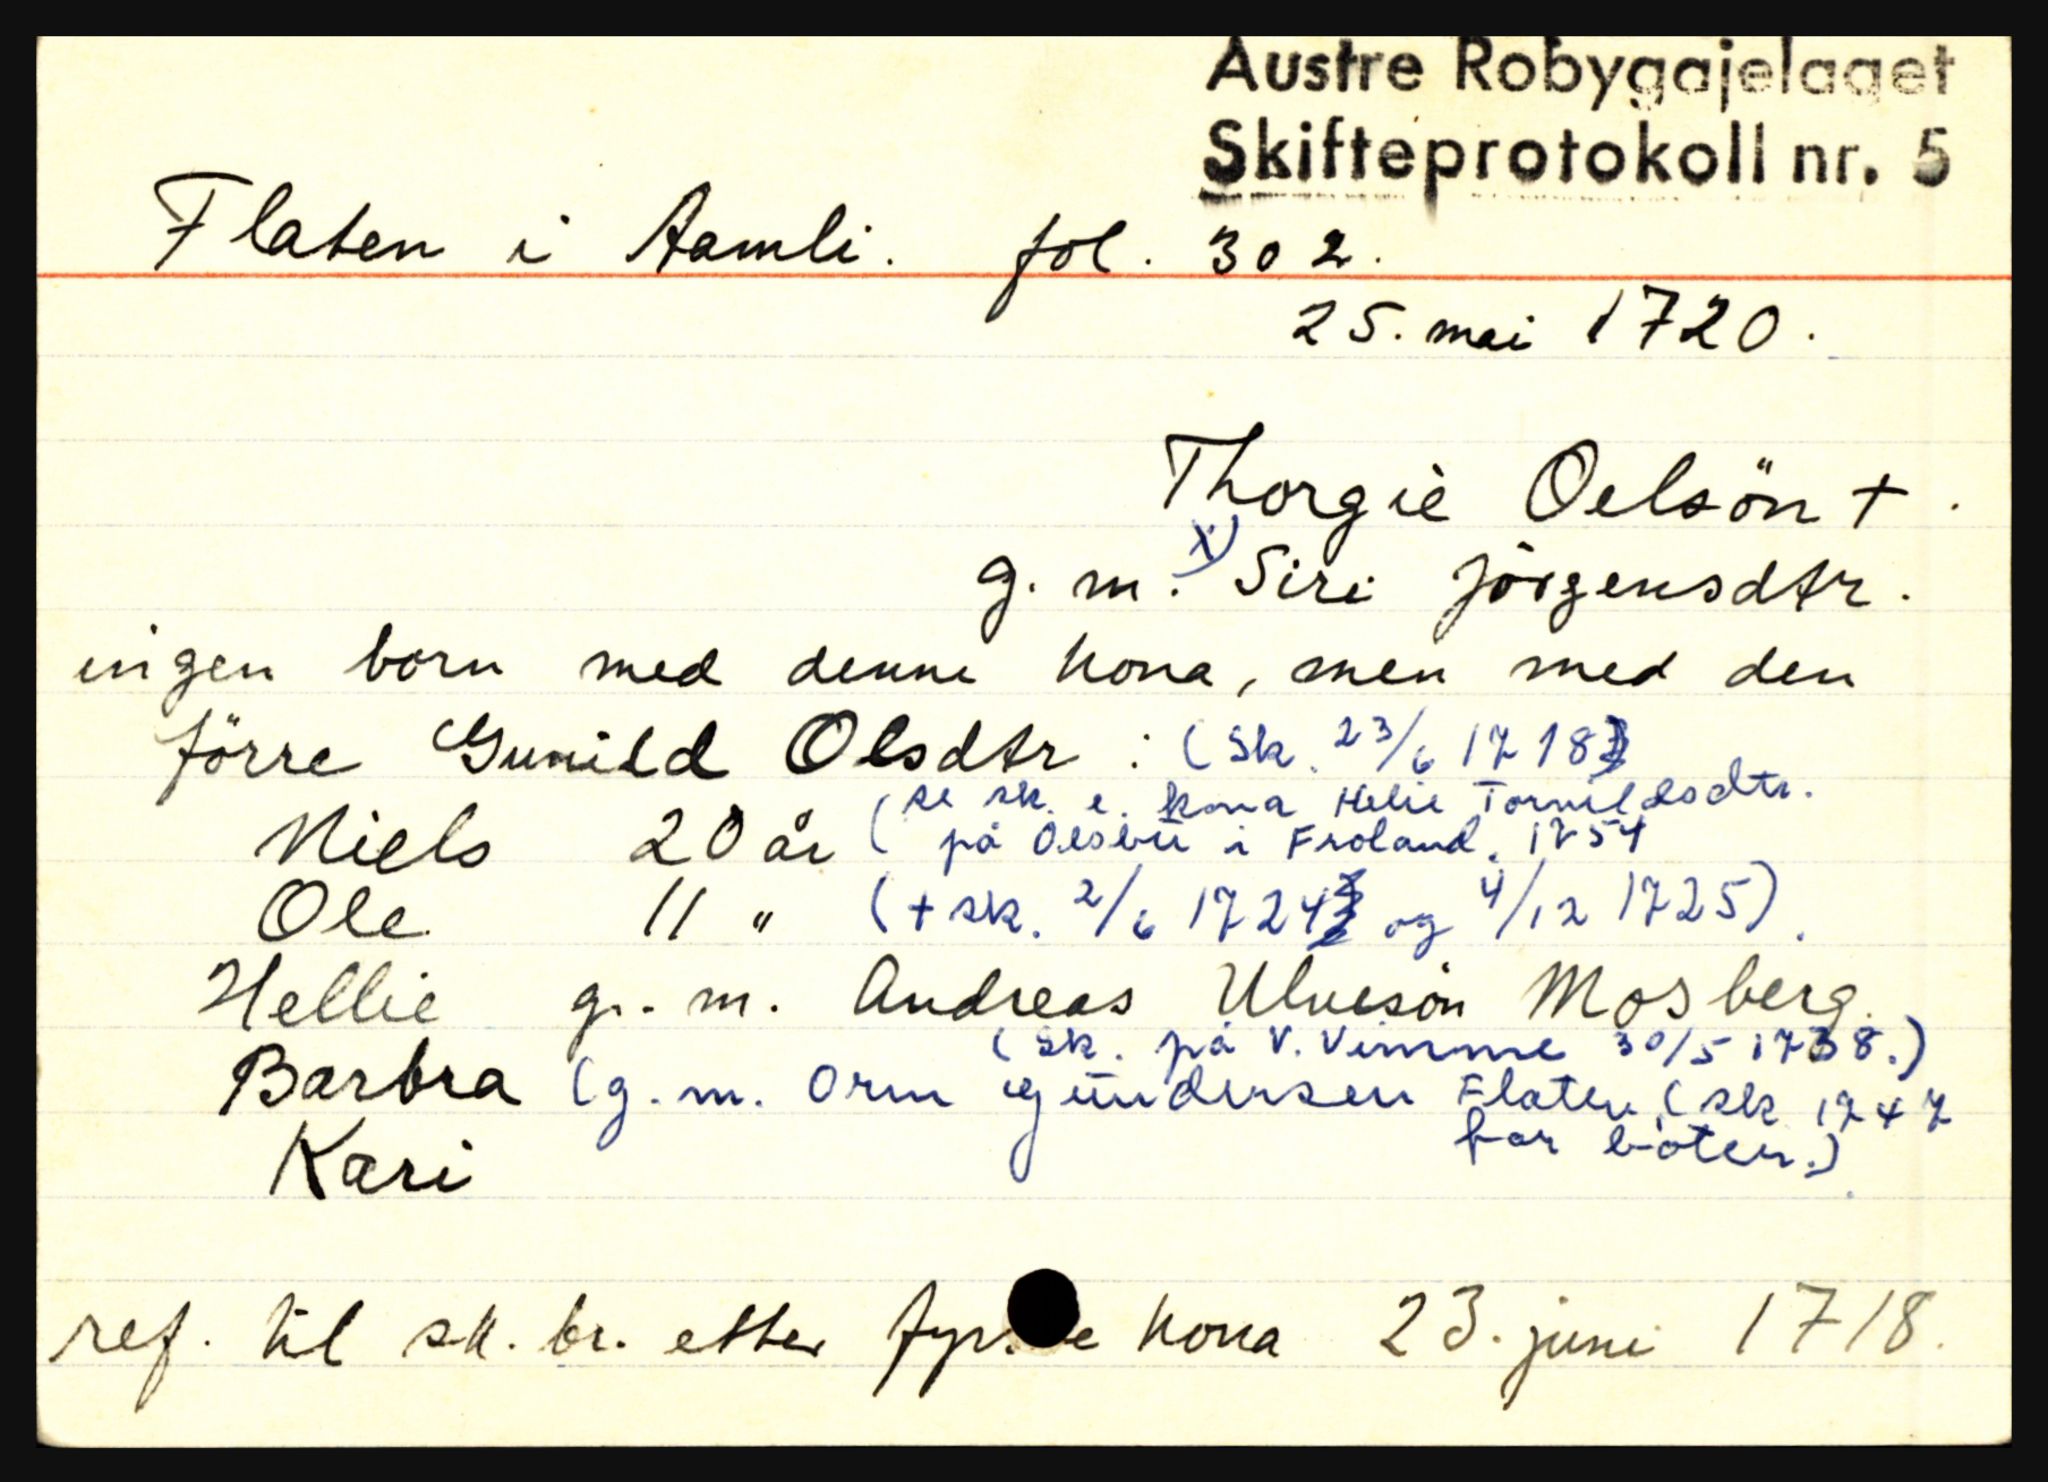 Austre Robygajelaget
Skifteprotokoll nr. 5
Flaten i Aamli. fol. 302.
25. mai 1720.
Thorgie Oelsön +.
g. m. x) Siri Jörgensdtr.
ingen born med denne kona, men med den
förre Gunild Olsdtr : (Sk. 23/6 1718
Niels 20 år (se sk. e. kona Helie Tornildsdtr.
på Olsbu i Froland. 1754
Ole 11 " (+ sk. 2/6 1724 og 4/12 1725).
Hellie g. m. Andreas Ulvesön Mosberg.
(Sk. på V. Vimme 30/5 1738.)
Barbra (g. m. Orm Gundersen Flaten (sk 1747
får bøter.)
Kari
ref. til sk. br. etter kona 23. juni 1718.